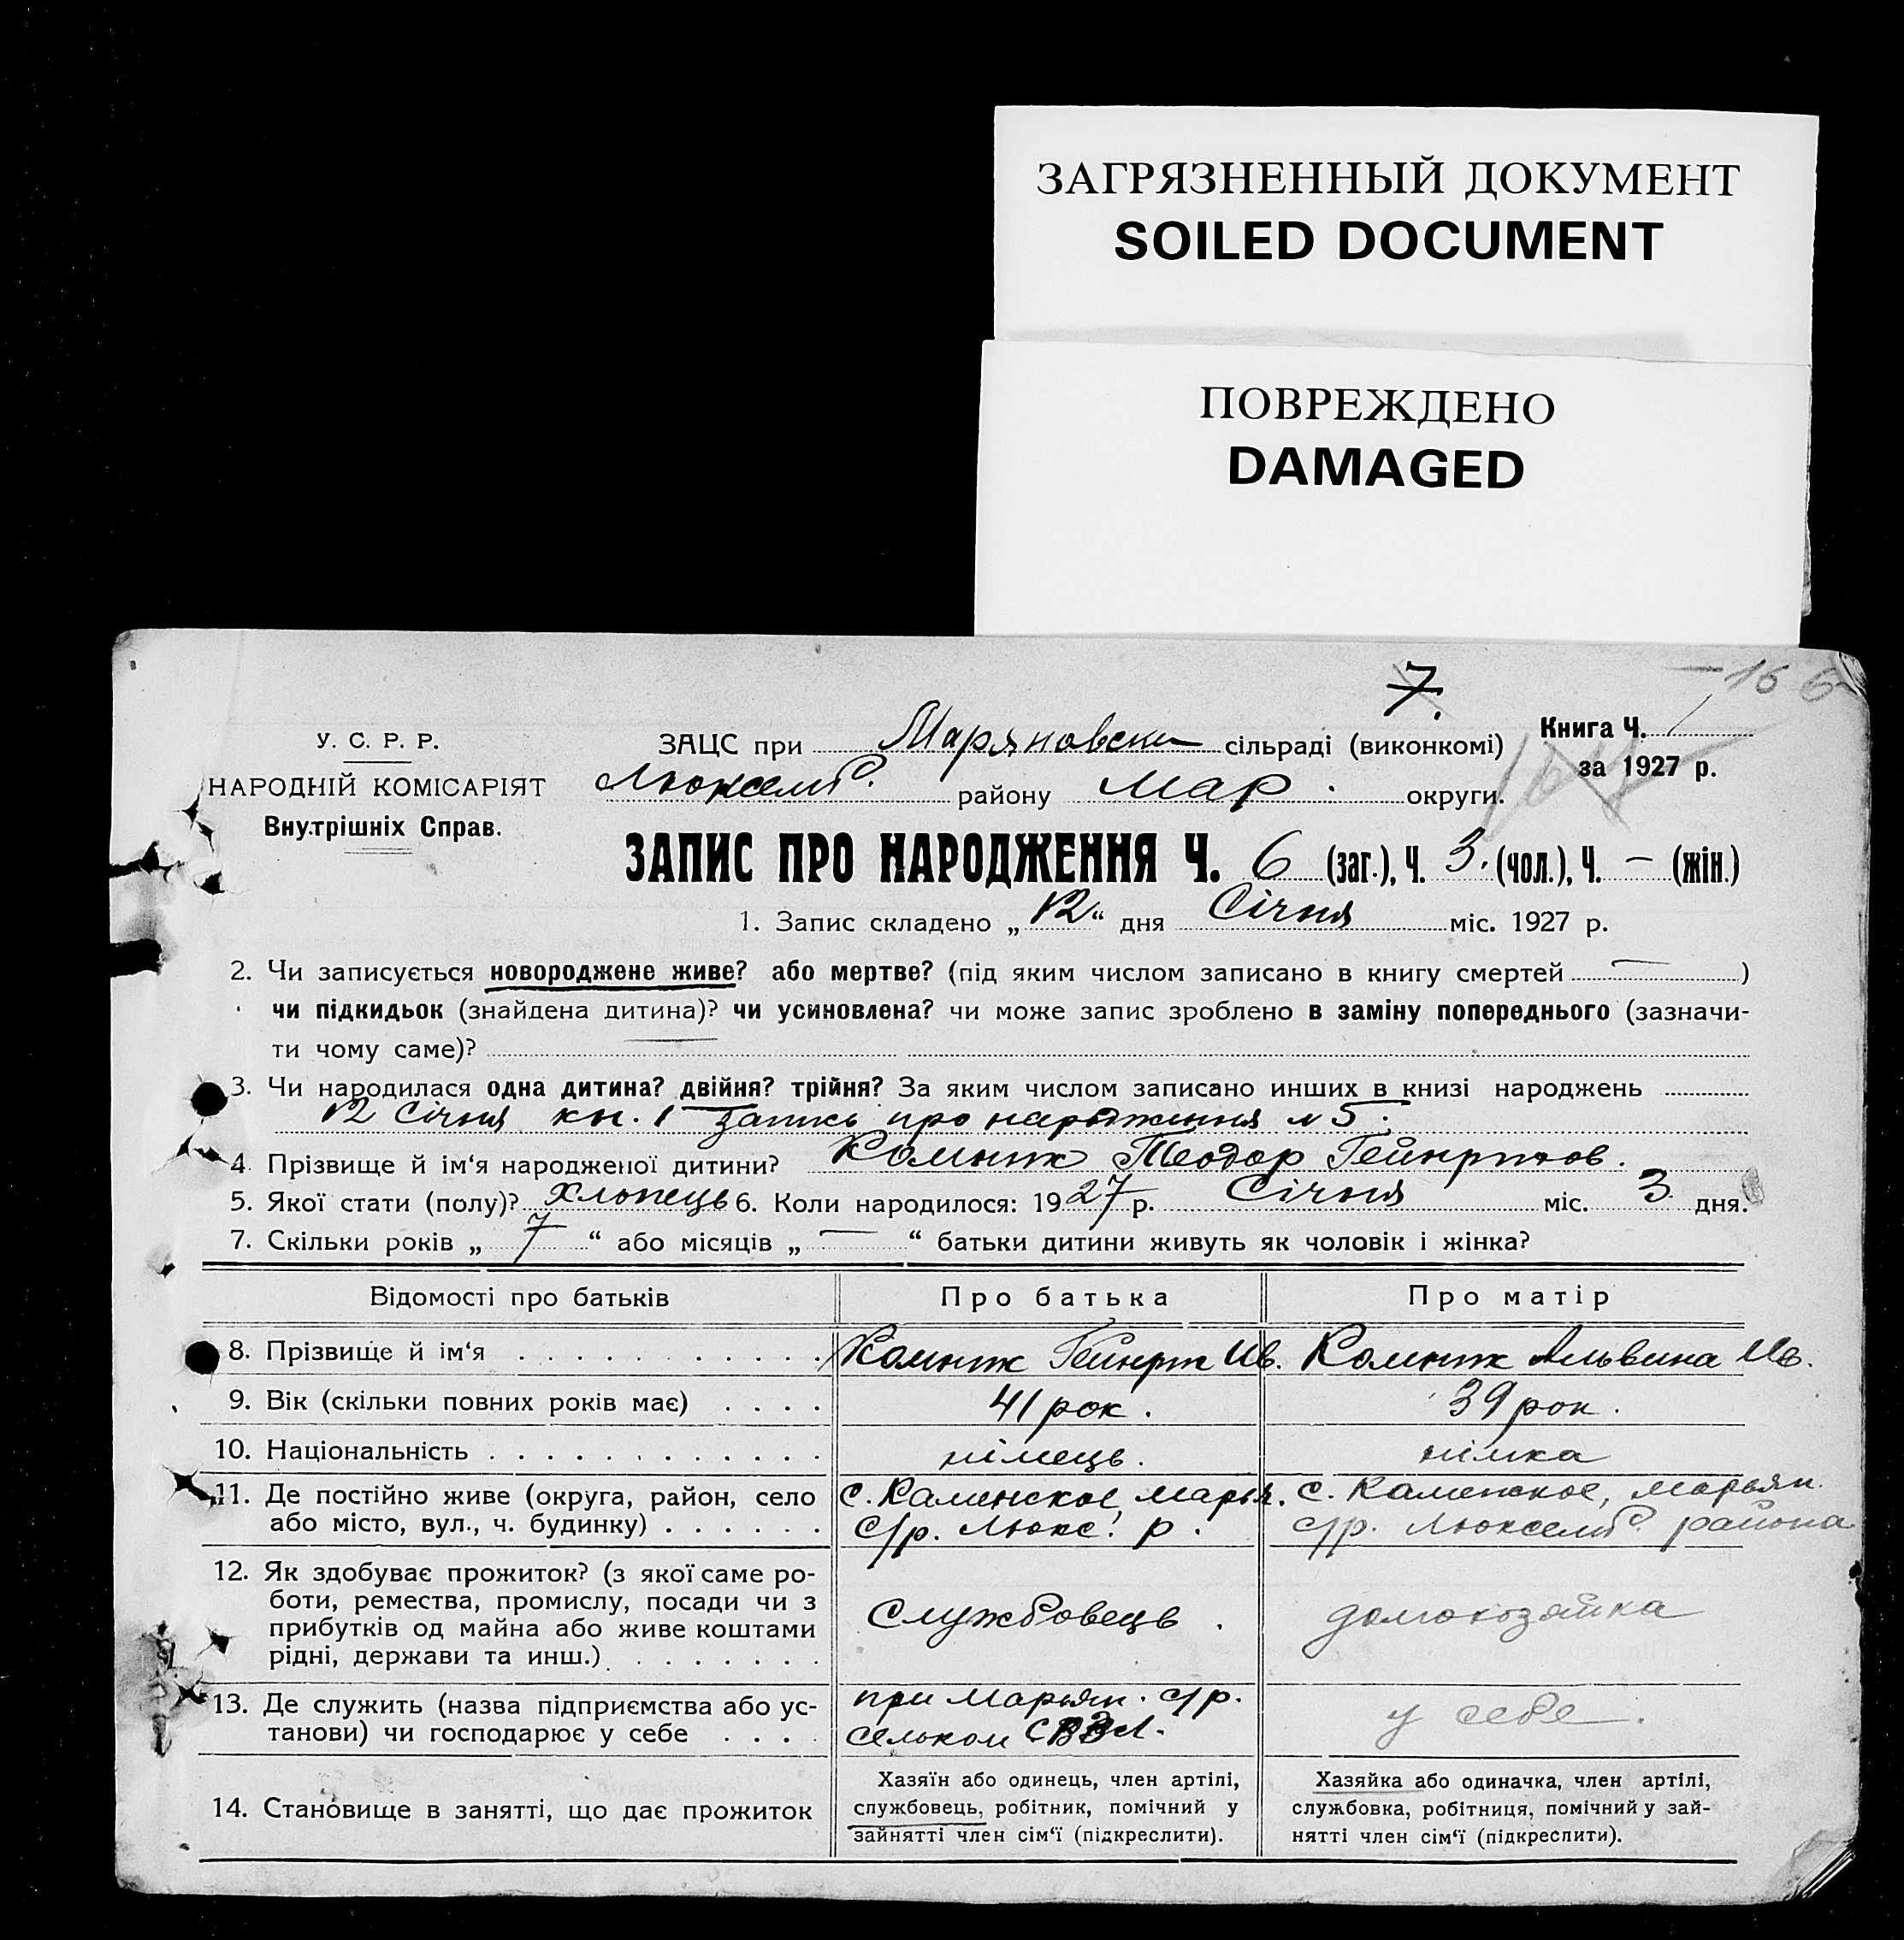 ЗАГРЯЗНЕННЫЙ ДОКУМЕНТ
SOILED DOCUMENT
ПОВРЕЖДЕНО
DAMAGED
7.
У. С. Р. Р.
НАРОДНІЙ КОМІСАРІЯТ
Внутрішніх Справ.
ЗАЦС при Маряновськ сільраді (виконкомі)
Люксемб. району Мар. округи.
Книга Ч. 1
за 1927 р.
ЗАПИС ПРО НАРОДЖЕННЯ Ч. 6 (заг.), Ч. 3. (чол.), Ч. — (жін.)
1. Запис складено „12“ дня Січня міс. 1927 р.
2. Чи записується новороджене живе? або мертве? (під яким числом записано в книгу смертей — )
чи підкидьок (знайдена дитина)? чи усиновлена? чи може запис зроблено в заміну попереднього (зазначи-
ти чому саме)? —
3. Чи народилася одна дитина? двійня? трійня? За яким числом записано инших в книзі народжень
12 Січня кн. 1 запись про народження № 5.
4. Прізвище й ім‘я народженої дитини? Теодор Гейнрихов.
5. Якої стати (полу)? хлопець 6. Коли народилося: 1927 р. Січня міс. 3 дня.
7. Скільки років „ 7 “ або місяців „ — “ батьки дитини живуть як чоловік і жінка?
Відомості про батьків
Про батька
Про матір
8. Прізвище й ім‘я
Гейнрих Ив.
Альвина Ив.
9. Вік (скільки повних років має)
41 рок.
39 рок.
10. Національність
німець.
німка
11. Де постійно живе (округа, район, село
або місто, вул., ч. будинку)
с. Каменское, Марья.
с/р. Люкс. р.
с. Каменское, Марьян.
с/р. Люксемб. района
12. Як здобуває прожиток? (з якої саме ро-
боти, ремества, промислу, посади чи з
прибутків од майна або живе коштами
рідні, держави та инш.)
Службовець.
домохозяйка
13. Де служить (назва підприємства або ус-
танови) чи господарює у себе
при Марьян. с/р.
сельком
у себе.
14. Становище в занятті, що дає прожиток
Хазяїн або одинець, член артілі,
службовець, робітник, помічний у
зайнятті член сім‘ї (підкреслити).
Хазяйка або одиначка, член артілі,
службовка, робітниця, помічний у зай-
нятті член сім‘ї (підкреслити).